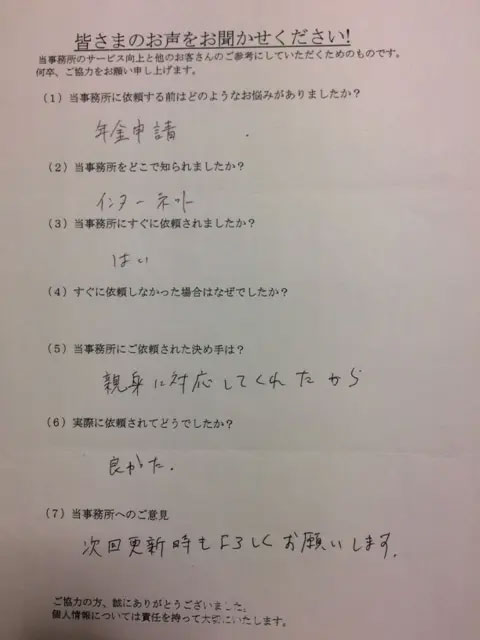 皆さまのお声をお聞かせください!
当事務所のサービス向上と他のお客さんのご参考にしていただくためのものです。
何卒、ご協力をお願い申し上げます。
(1)当事務所に依頼する前はどのようなお悩みがありましたか?
年金申請
(2)当事務所をどこで知られましたか?
インターネット
(3)当事務所にすぐに依頼されましたか?
はい
(4)すぐに依頼しなかった場合はなぜでしたか?
(5)当事務所にご依頼された決め手は?
親身に対応してくれたから
(6)実際に依頼されてどうでしたか?
良かた.
(7)当事務所へのご意見
次回更新時もよろしくお願いします.
ご協力の方、誠にありがとうございました。
個人情報については責任を持って大切にいたします。